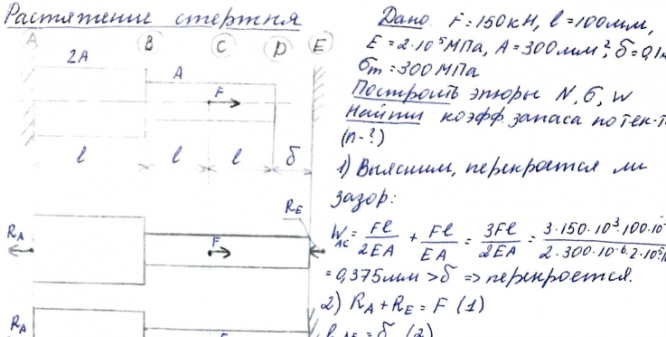 Растяжение стержня
A B C D E
2A
A
F
l l l δ
R_A R_E
F
R_A
Дано. F=150кН, l=100мм,
E=2·10⁵МПа, A=300мм², δ=0,1
σт=300МПа
Построить эпюры N, σ, W
Найти коэфф. запаса по тек-т
(n-?)
1) Выясним, перекроется ли
зазор:
W_AC = Fl/2EA + Fl/EA = 3Fl/2EA = 3·150·10³·100·10/2·300·10⁻⁶·2·10⁵
=0,375мм>δ => перекроется.
2) R_A+R_E=F (1)
=δ (2)